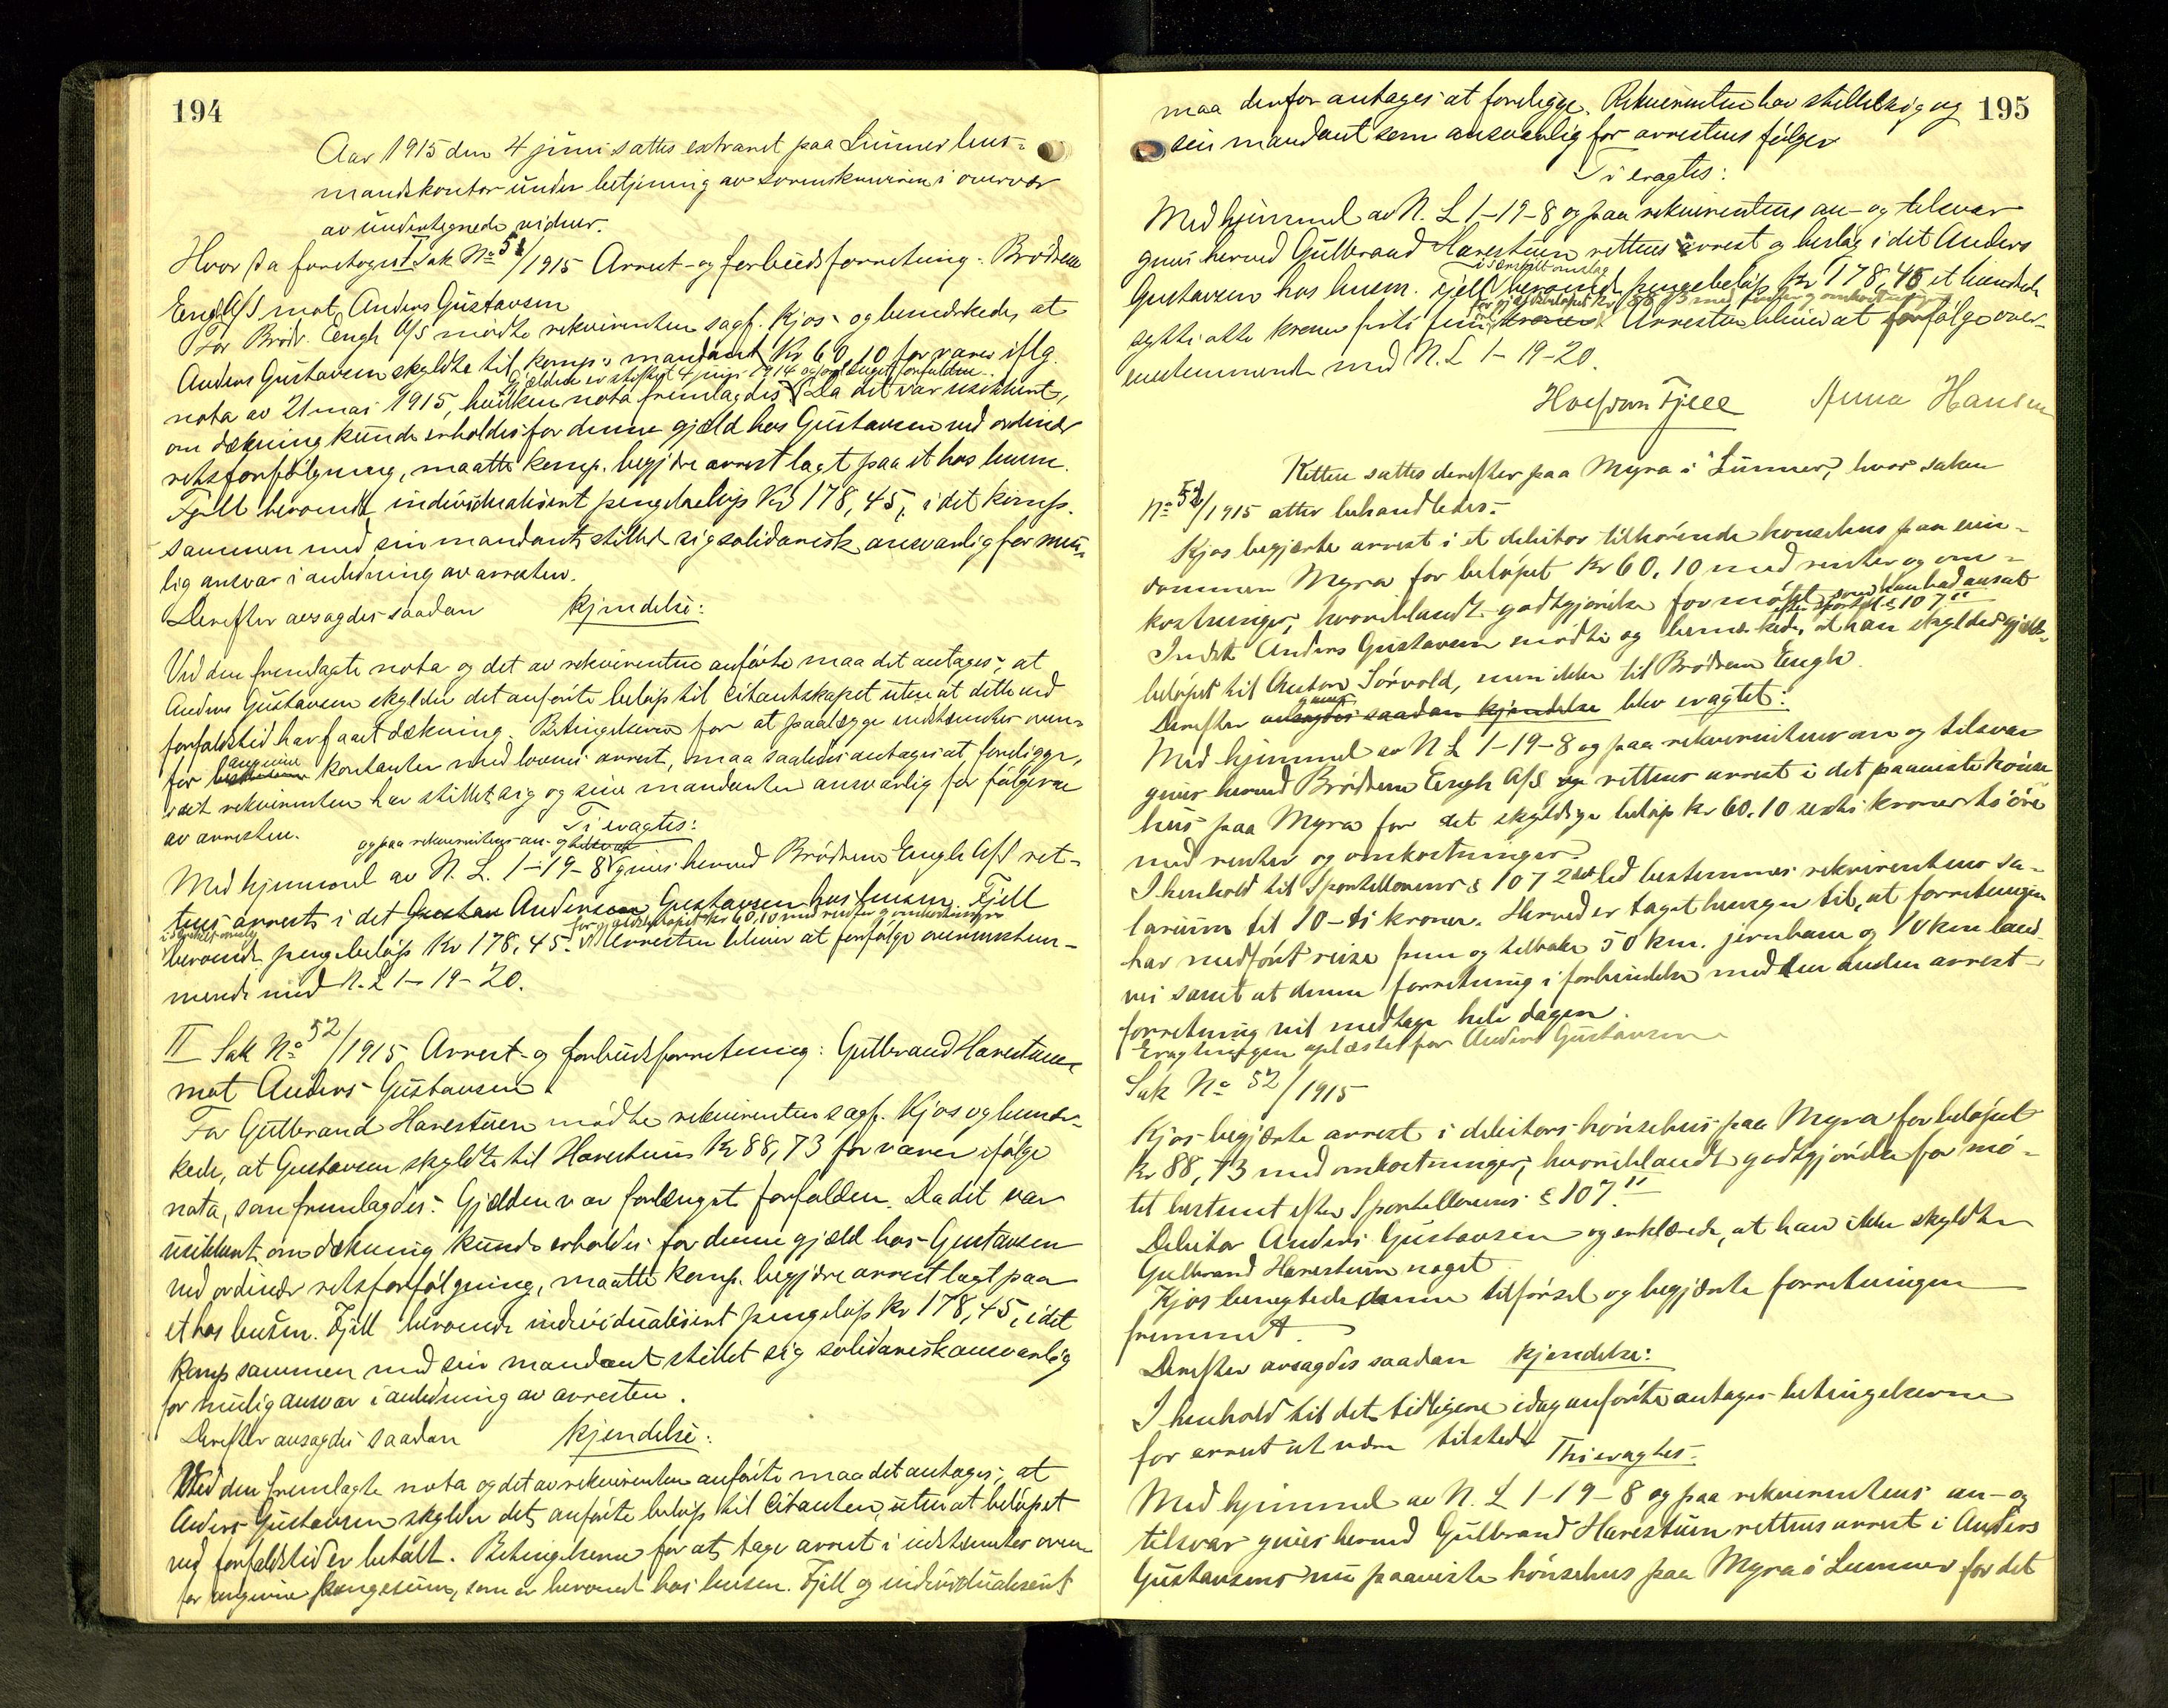 194
Aar 1915 den 4 juni sattes extraret paa Lunner lens-
mandskontor under betjening av sorenskriveren i overvær
av undertegnede vidner.
Hvor da foretoges I Sak No 51/1915 Arrest- og forbudsforretning: Brødrene
Engh A/S mot Anders Gustavsen
For Brødr. Engh A/S mødte rekvirenten sagf. Kjos og bemerkede, at
Anders Gustavsen skyldte til komp.s mandant Kr 60,10 for varer iflg.
Gjælden er stiftet 4 juni 1914 og forlengst forfalden.
nota av 21 mai 1915, hvilken nota fremlagdes. Da det var usikkert,
om dækning kunde erholdes for denne gjæld hos Gustavsen ved ordinær
retsforfølgning, maatte komp. begjære arrest lagt paa et hos lensm.
Fjell beroende individualisert pengebeløp Kr 178,45, idet komp.
sammen med sin mandant stillet sig solidarisk ansvarlig for mu-
lig ansvar i anledning av arresten.
Derefter avsagdes saadan kjendelse:
Ved den fremlagte nota og det av rekvirenten anførte maa det antages, at
Anders Gustavsen skylder det anførte beløp til Citantskapet uten at dette ved
forfaldstid har faaet dækning. Betingelserne for at paalægge indstævnter oven-
for angivne kontanter med lovens arrest, maa saaledes antages at foreligge,
idet rekvirenten har stillet sig og sine mandanter ansvarlig for følgerne
av arresten. Ti eragtes:
og paa rekvirentens an- og tilsvar
Med hjemmel av N. L. 1-19-8 gives herved Brødrene Engh A/S ret-
tens arrest i det Gustav Andersen Gustavsen hos lensm. Fjell
i særskilt omslag for gjældsbeløpet kr 60,10 med renter og omkostninger
beroende pengebeløp Kr 178,45. Arresten bliver at forfølge overensstem-
mende med N. L 1-19-20.
II Sak No 52/1915 Arrest- og forbudsforretning: Gulbrand Harestuen
mot Anders Gustavsen
For Gulbrand Harestuen mødte rekvirenten sagf. Kjos og bemer-
kede, at Gustavsen skyldte til Harestuen Kr 88,73 for varer ifølge
nota, som fremlagdes. Gjælden var forlængst forfalden. Da det var
usikkert om dækning kunde erholdes for denne gjæld hos Gustavsen
ved ordinær retsforfølgning, maatte komp. begjære arrest lagt paa
et hos lensm. Fjell beroende individualisert pengeløp kr 178,45, idet
komp sammen med sin mandant stillet sig solidarisk ansvarlig
for mulig ansvar i anledning av arresten.
Derefter avsagdes saadan kjendelse:
Ved den fremlagte nota og det av rekvirenten anførte maa det antages, at
Anders Gustavsen skylder det anførte beløp til Citanten, uten at beløpet
ved forfaldstid er betalt. Betingelserne for at tage arrest i indstevnter oven
for angivne pengesum, som er beroende hos lensm. Fjell og individualisert
195
maa derfor antages at foreligge. Rekvirenten har stillet sig og
sin mandant som ansvarlig for arrestens følger
Ti eragtes:
Med hjemmel av N. L 1-19-8 og paa rekvirentens an- og tilsvar
gives herved Gulbrand Harestuen rettens arrest og beslag i det Anders
i særskilt omslag
Gustavsen hos lensm. Fjell beroende pengebeløp Kr 178,45 et hundrede
for gjældsbeløpet kr 88,73 med renter og omkostninger
sytti otte kroner førti fem øre kroner Arresten bliver at forfølge over-
ensstemmende med N. L 1-19-20.
Halfdan Fjell Anna Hansen
Retten sattes derefter paa Myra i Lunner, hvor saken
No 51/1915 atter behandledes.
Kjos begjærte arrest i et debitor tilhørende hønsehus paa eien-
dommen Myra for beløpet kr 60,10 med renter og om-
kostninger, hvoriblandt godtgjørelse for møtet som han bad ansat
efter sportell. § 107 II
Indst. Anders Gustavsen mødte og bemerkede, at han skyldte gjælds-
beløpet til Anton Sørvold, men ikke til Brødrene Engh.
Derefter avsagdes saadan kjendelse blev eragtet:
Med hjemmel av N L 1-19-8 og paa rekvirentens an og tilsvar
gives herved Brødrene Engh A/S rettens arrest i det paaviste hønse
hus paa Myra for det skyldige beløp kr 60.10 seksti kroner ti øre
med renter og omkostninger.
I henhold til Sportellovens § 107 2det led bestemmes rekvirentens sa-
larium til 10 - ti kroner. Herved er taget hensyn til, at forretningen
har medført reise frem og tilbake 50 km. jernbane og 10 km land-
vei samt at denne forretning i forbindelse med den anden arrest-
forretning vil medtage hele dagen.
Eragtningen oplæstes for Anders Gustavsen
Sak No 52/1915
Kjos begjærte arrest i debitors hønsehus paa Myra for beløpet
kr 88,73 med omkostninger, hvoriblandt godtgjørelse for mø-
tet bestemt efter Sportellovens § 107 II
Debitor Anders Gustavsen og erklærede, at han ikke skyldte
Gulbrand Harestuen noget.
Kjos benegtede denne tilførsel og begjærte forretningen
fremmet.
Derefter avsagdes saadan kjendelse:
I henhold til det tidligere idag anførte antages betingelserne
for arrest at være tilstede Thi eragtes:
Med hjemmel av N. L 1-19-8 og paa rekvirentens an- og
tilsvar gives herved Gulbrand Harestuen rettens arrest i Anders
Gustavsens nu paaviste hønsehus paa Myra i Lunner for det